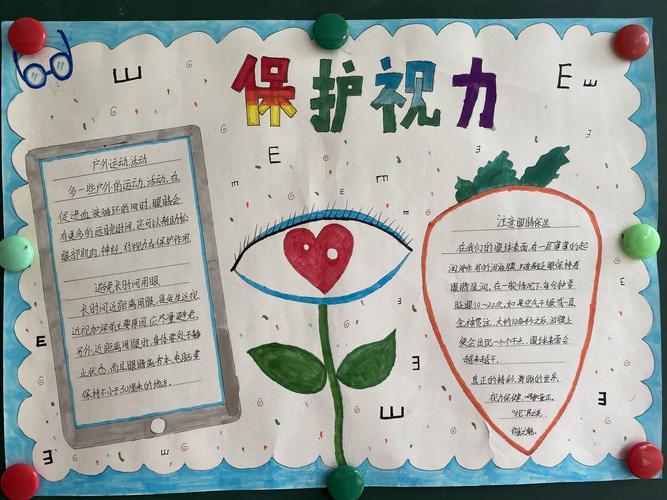 保护视力
E
E
E
户外运动,活动
多一些户外的运动,活动,在
促进血液循环的同时,眼睛会
有更多的远眺时间,还可以帮助松
眼部肌肉,神经,对视力有保护作用.
避免长时间用眼
长时间近距离用眼,是发生近视
近视加深的主要原因,它尽量避免.
另外,近距离用眼时,身体要处于静
止状态,而且眼睛离书本、电脑要
保持不小于30厘米的地方.
注意眼睛保湿
在我们的眼球表面,有一层薄薄的起
润滑作用的泪液膜,
眼睛湿润,在一般情况下,每分钟要
眨眼10~20次,如果空气干燥或一直
全神贯注,大约10多秒之后,泪膜上
便会出现一个个干点,眼球表面会
越来越干.
真正的精彩,清晰的世界,
视力保健,
你我之魅.